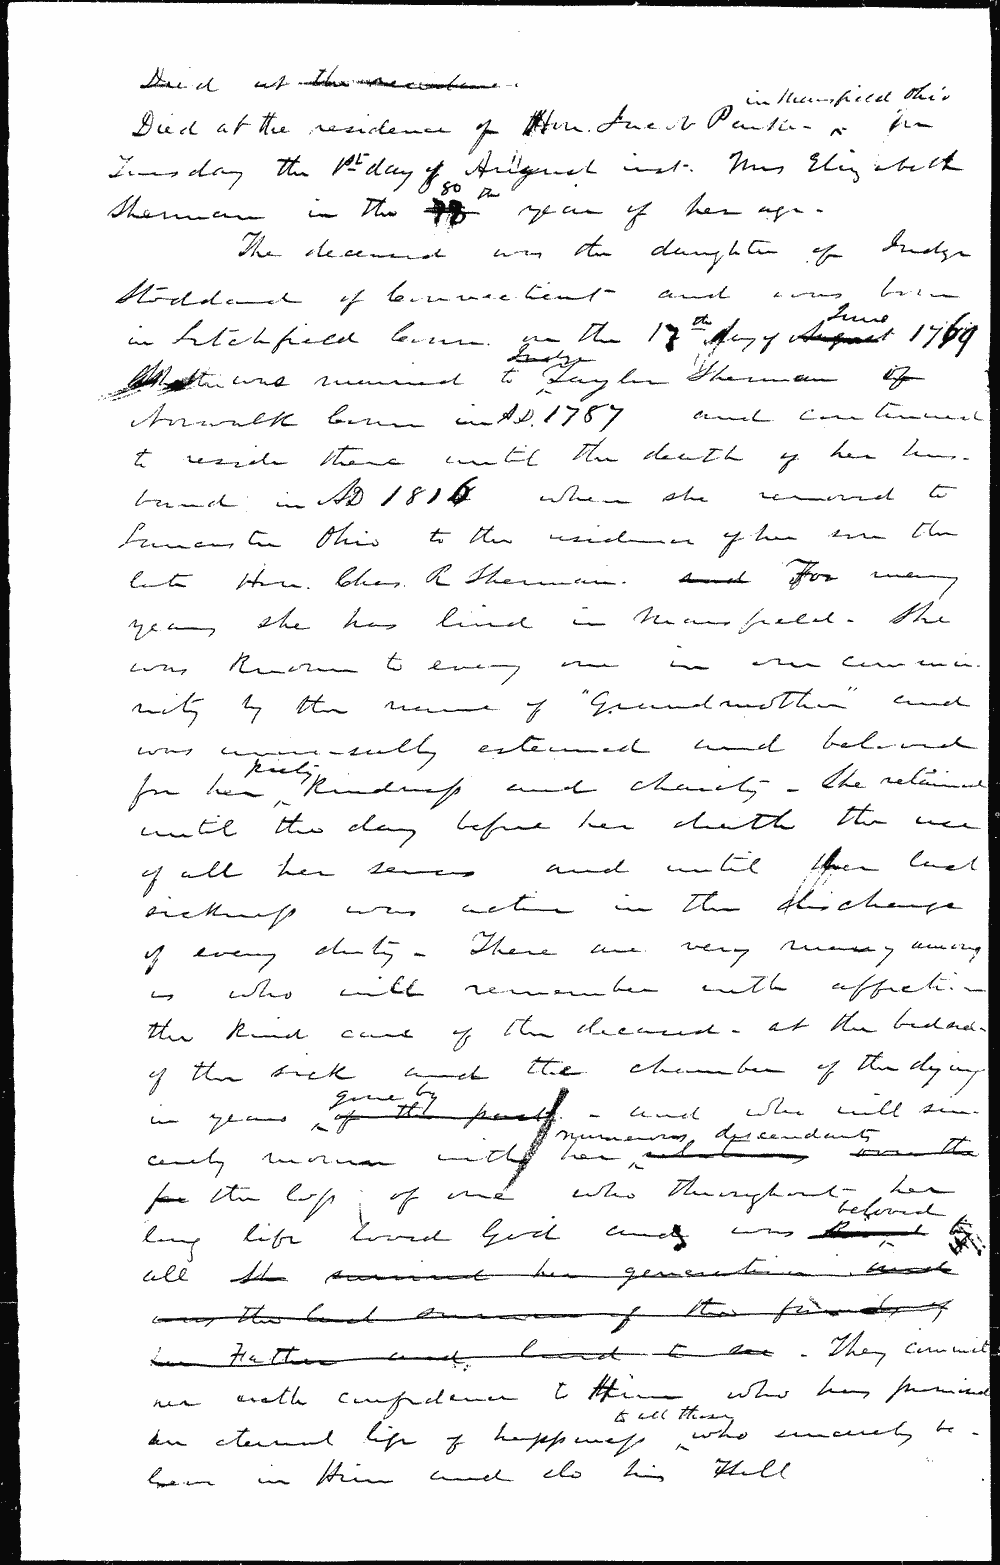 Died at the residence
in Mansfield Ohio
Died at the residence of Hon. Jacob Parker on
Tuesday the 1st day of August inst. Mrs Elizabeth
80 th
Sherman in the 78 year of her age.
The deceased was the daughter of Judge
Stoddard of Connecticut and was born
June
in Litchfield Conn. on the 17th day of August 1769
Judge
She was married to Taylor Sherman of
Norwalk Conn in AD. 1787 and continued
to reside there until the death of her hus-
band in AD 1816 when she removed to
Lancaster Ohio to the residence of her son the
late Hon. Chas. R Sherman. and For many
years she has lived in Mansfield - She
was known to every one in our commu-
nity by the name of "Grandmother" and
was universally esteemed and beloved
piety
for her kindness and charity - She retained
until the day before her death the use
of all her senses and until her last
sickness was active in the discharge
of every duty - There are very many among
us who will remember with affection
the kind care of the deceased - at the bedside
of the sick and the chamber of the dying
gone by
in years of the past - and who will sin-
numerous descendants
cerely mourn with her relations over the
for the loss of one who throughout her
beloved
long life loved God and was kind to
all She survived her generation and
was the last survivor of the friends of
her Father and lived to see - They commit
her with confidence to Him who has promised
to all those
an eternal life of happiness who sincerely be-
lieve in Him and do his Will